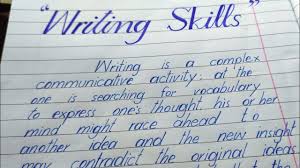 "Writing Skills"
Writing is a complex
communicative activity: at the
one is searching for vocabulary
to express one's thought his or her
mind might race ahead to
another idea and the new insight
may contradict the original ideas